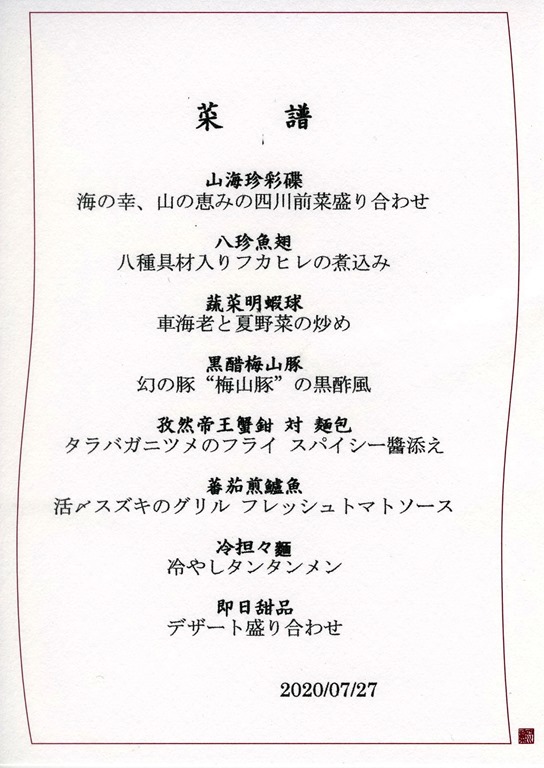 菜 譜
山海珍彩碟
海の幸、山の恵みの四川前菜盛り合わせ
八珍魚翅
八種具材入りフカヒレの煮込み
蔬菜明蝦球
車海老と夏野菜の炒め
黒醋梅山豚
幻の豚“梅山豚”の黒酢風
孜然帝王蟹鉗 対 麵包
タラバガニツメのフライ スパイシー醬添え
蕃茄煎鱸魚
活〆スズキのグリル フレッシュトマトソース
冷担々麵
冷やしタンタンメン
即日甜品
デザート盛り合わせ
2020/07/27